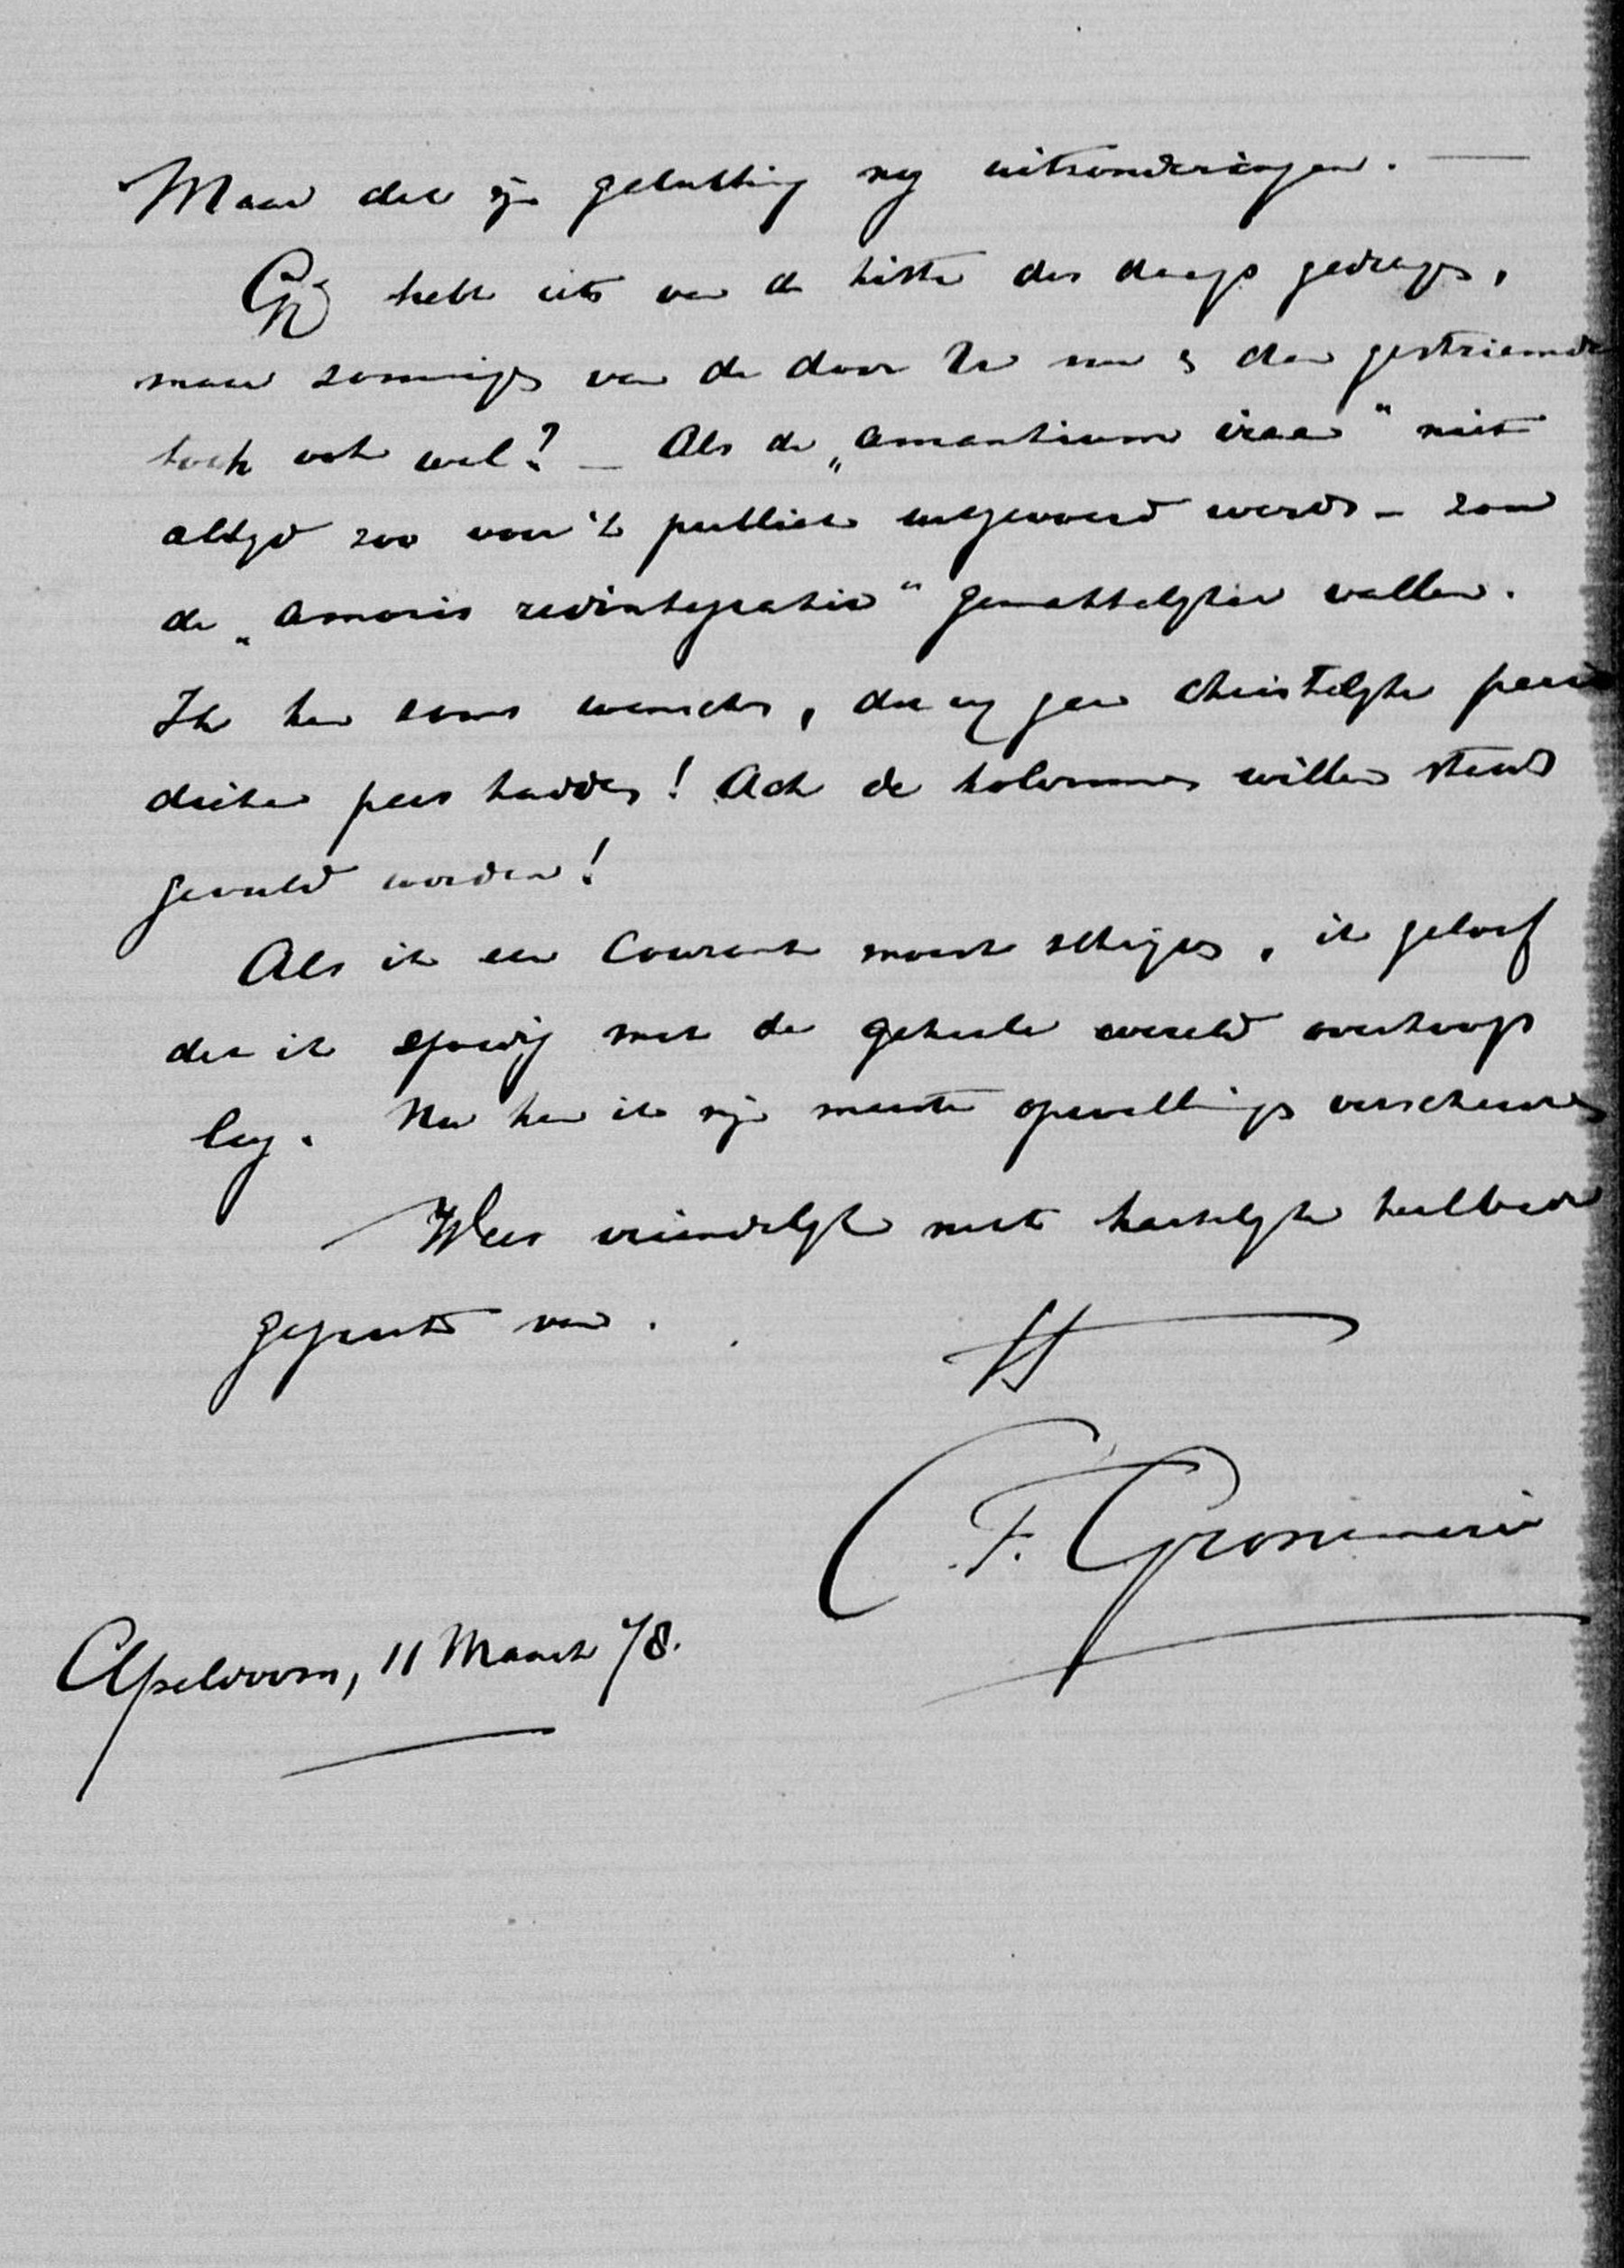 Maar dat zijn gelukkig nog uitzonderingen. —
Gij hebt iets van de hitte des daags gedragen,
maar sommigen van de door U nu & dan gestriemde
toch ook wel? — Als de „amantium irae" niet
altijd zoo voor 't publiek uitgevoerd werd — zou
de „amoris redintegratio" gemakkelijker vallen.
Ik kan soms wenschen, dat wij geen christelijke perio
dieke pers hadden! Ach de kolommen willen steeds
gevuld worden!
Als ik een Courant moest schrijven, ik geloof
dat ik spoedig met de geheele wereld overhoop
lag. Nu kan ik mijn meeste opwellingen verscheuren
Wees vriendelijk met hartelijke heilbede
gegroet van.
tt
C F. Gronemeijer
Apeldoorn, 11 Maart /78.